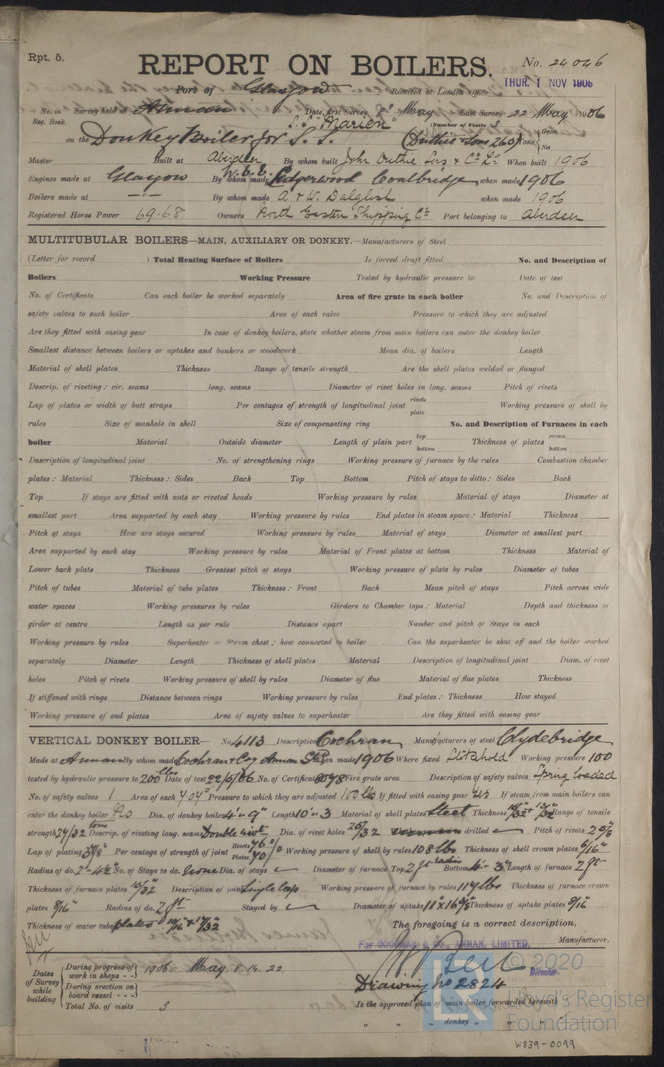 Rpt. 5.
REPORT ON BOILERS.
No. 24046
Port of Glasgow Received at London Office THUR. 1 NOV 1906
No. in Survey held at Annan Date, first Survey 8th May Last Survey 22 May 1906
Reg. Book. (Number of Visits 3)
on the Donkey Boiler for S.S. "Marien" (Duthie & Sons 260) Tons Gross Net
Master Built at Aberdeen By whom built John Duthie Sons & Co Ld When built 1906
Engines made at Glasgow By whom made W.V.V. Lidgerwood Coatbridge when made 1906
Boilers made at -"- By whom made A & W. Dalglish when made 1906
Registered Horse Power 69.68 Owners North Eastern Shipping Co Port belonging to Aberdeen
MULTITUBULAR BOILERS—MAIN, AUXILIARY OR DONKEY.—Manufacturers of Steel
(Letter for record ) Total Heating Surface of Boilers Is forced draft fitted No. and Description of
Boilers Working Pressure Tested by hydraulic pressure to Date of test
No. of Certificate Can each boiler be worked separately Area of fire grate in each boiler No. and Description of
safety valves to each boiler Area of each valve Pressure to which they are adjusted
Are they fitted with easing gear In case of donkey boilers, state whether steam from main boilers can enter the donkey boiler
Smallest distance between boilers or uptakes and bunkers or woodwork Mean dia. of boilers Length
Material of shell plates Thickness Range of tensile strength Are the shell plates welded or flanged
Descrip. of riveting: cir. seams long. seams Diameter of rivet holes in long. seams Pitch of rivets
Lap of plates or width of butt straps Per centages of strength of longitudinal joint rivets plate Working pressure of shell by
rules Size of manhole in shell Size of compensating ring No. and Description of Furnaces in each
boiler Material Outside diameter Length of plain part top bottom Thickness of plates crown bottom
Description of longitudinal joint No. of strengthening rings Working pressure of furnace by the rules Combustion chamber
plates: Material Thickness: Sides Back Top Bottom Pitch of stays to ditto: Sides Back
Top If stays are fitted with nuts or riveted heads Working pressure by rules Material of stays Diameter at
smallest part Area supported by each stay Working pressure by rules End plates in steam space: Material Thickness
Pitch of stays How are stays secured Working pressure by rules Material of stays Diameter at smallest part
Area supported by each stay Working pressure by rules Material of Front plates at bottom Thickness Material of
Lower back plate Thickness Greatest pitch of stays Working pressure of plate by rules Diameter of tubes
Pitch of tubes Material of tube plates Thickness: Front Back Mean pitch of stays Pitch across wide
water spaces Working pressures by rules Girders to Chamber tops: Material Depth and thickness of
girder at centre Length as per rule Distance apart Number and pitch of Stays in each
Working pressure by rules Superheater or Steam chest; how connected to boiler Can the superheater be shut off and the boiler worked
separately Diameter Length Thickness of shell plates Material Description of longitudinal joint Diam. of rivet
holes Pitch of rivets Working pressure of shell by rules Diameter of flue Material of flue plates Thickness
If stiffened with rings Distance between rings Working pressure by rules End plates: Thickness How stayed
Working pressure of end plates Area of safety valves to superheater Are they fitted with easing gear
VERTICAL DONKEY BOILER— No. 4113 Description Cochran Manufacturers of steel Clydebridge
Made at Annan By whom made Cochran & Coy Annan Ltd When made 1906 Where fixed Stokehold Working pressure 100
tested by hydraulic pressure to 200 lbs Date of test 22/5/06 No. of Certificate 8078 Fire grate area Description of safety valves Spring loaded
No. of safety valves 1 Area of each 7.07" Pressure to which they are adjusted 100 lbs If fitted with easing gear Yes If steam from main boilers can
enter the donkey boiler No Dia. of donkey boiler 4'-9" Length 10'-3 Material of shell plates Steel Thickness Range of tensile
strength 27/32 tons Descrip. of riveting long. seams Double rivet Dia. of rivet holes 26/32 Whether drilled Pitch of rivets 2 5/8
Lap of plating Per centage of strength of joint Rivets 76 % Plates 70 Working pressure of shell by rules 108 lbs Thickness of shell crown plates 9/16"
Radius of do. 2'-4½" No. of Stays to do. none Dia. of stays Diameter of furnace Top 2ft radius Bottom 4'-3" Length of furnace 2 ft
Thickness of furnace plates 19/32 Description of joint Single lap Working pressure of furnace by rules 117 lbs Thickness of furnace crown
plates 9/16" Radius of do. 2 ft Stayed by Diameter of uptake Thickness of uptake plates 9/16
Thickness of water tubes plates
The foregoing is a correct description,
FOR COCHRAN & CO., ANNAN, LIMITED. Manufacturer.
Director
Dates of Survey while building During progress of work in shops - - 1906. May 8. 14. 22.
During erection on board vessel - - -
Total No. of visits 3
Drawing No 2824
Is the approved plan of main boiler forwarded herewith
" " " donkey " "
© 2020
Lloyd's Register
Foundation
W839-0099